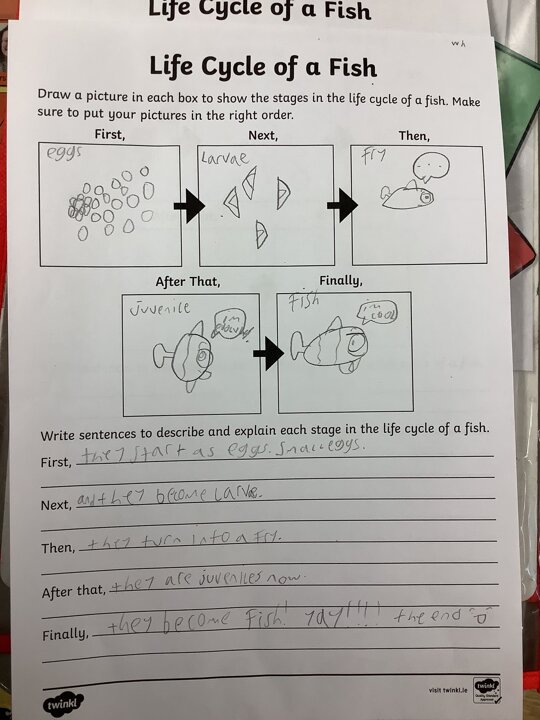 Life Cycle of a Fish
Life Cycle of a Fish
Draw a picture in each box to show the stages in the life cycle of a fish. Make
sure to put your pictures in the right order.
First,
Next,
Then,
eggs
Larvae
Fry
...
After That,
Finally,
Juvenile
I'm
Fish
I'm
cool
Write sentences to describe and explain each stage in the life cycle of a fish.
First, they start as eggs. Small eggs.
Next, and they become Larvae.
Then, they turn into a Fry.
After that, they are juveniles now.
Finally, they become Fish! Yay!!!! the end :D
twinkl
visit twinkl.ie
twinkl
Quality Standard
Approved